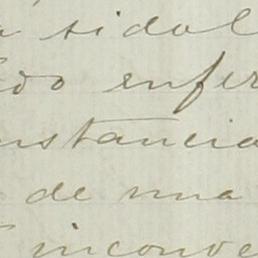 a sidol
do enfer
nstancia
de una
inconve